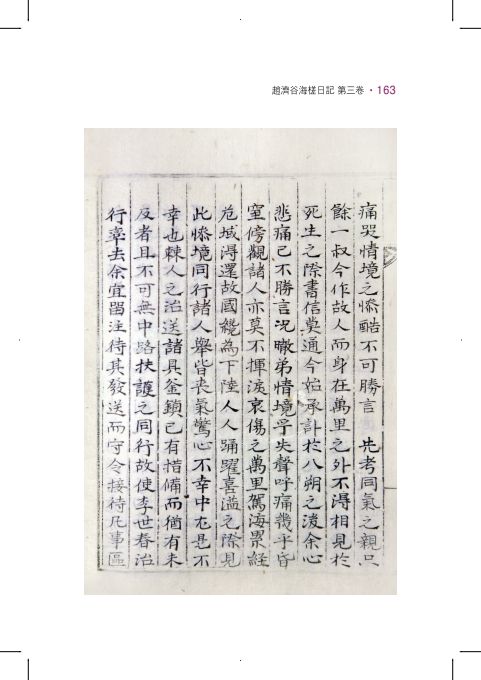 趙濟谷海槎日記 第三卷 · 163
痛哭情境之慘酷不可勝言 先考同氣之親只
餘一叔今作故人而身在萬里之外不淂相見於
死生之際書信莫通今始承訃於八朔之後余心
悲痛已不勝言况暾弟情境乎失聲呼痛幾乎昏
窒傍觀諸人亦莫不揮淚哀傷之萬里駕海累経
危域淂還故國纔為下陸人人踊躍喜溢之際見
此慘境同行諸人舉皆丧氣驚心不幸中尤是不
幸也棘人之治送諸具釜鎖已有措備而猶有未
及者且不可無中路扶護之同行故使李世春治
行率去余宜留注待其發送而守令接待凡事區